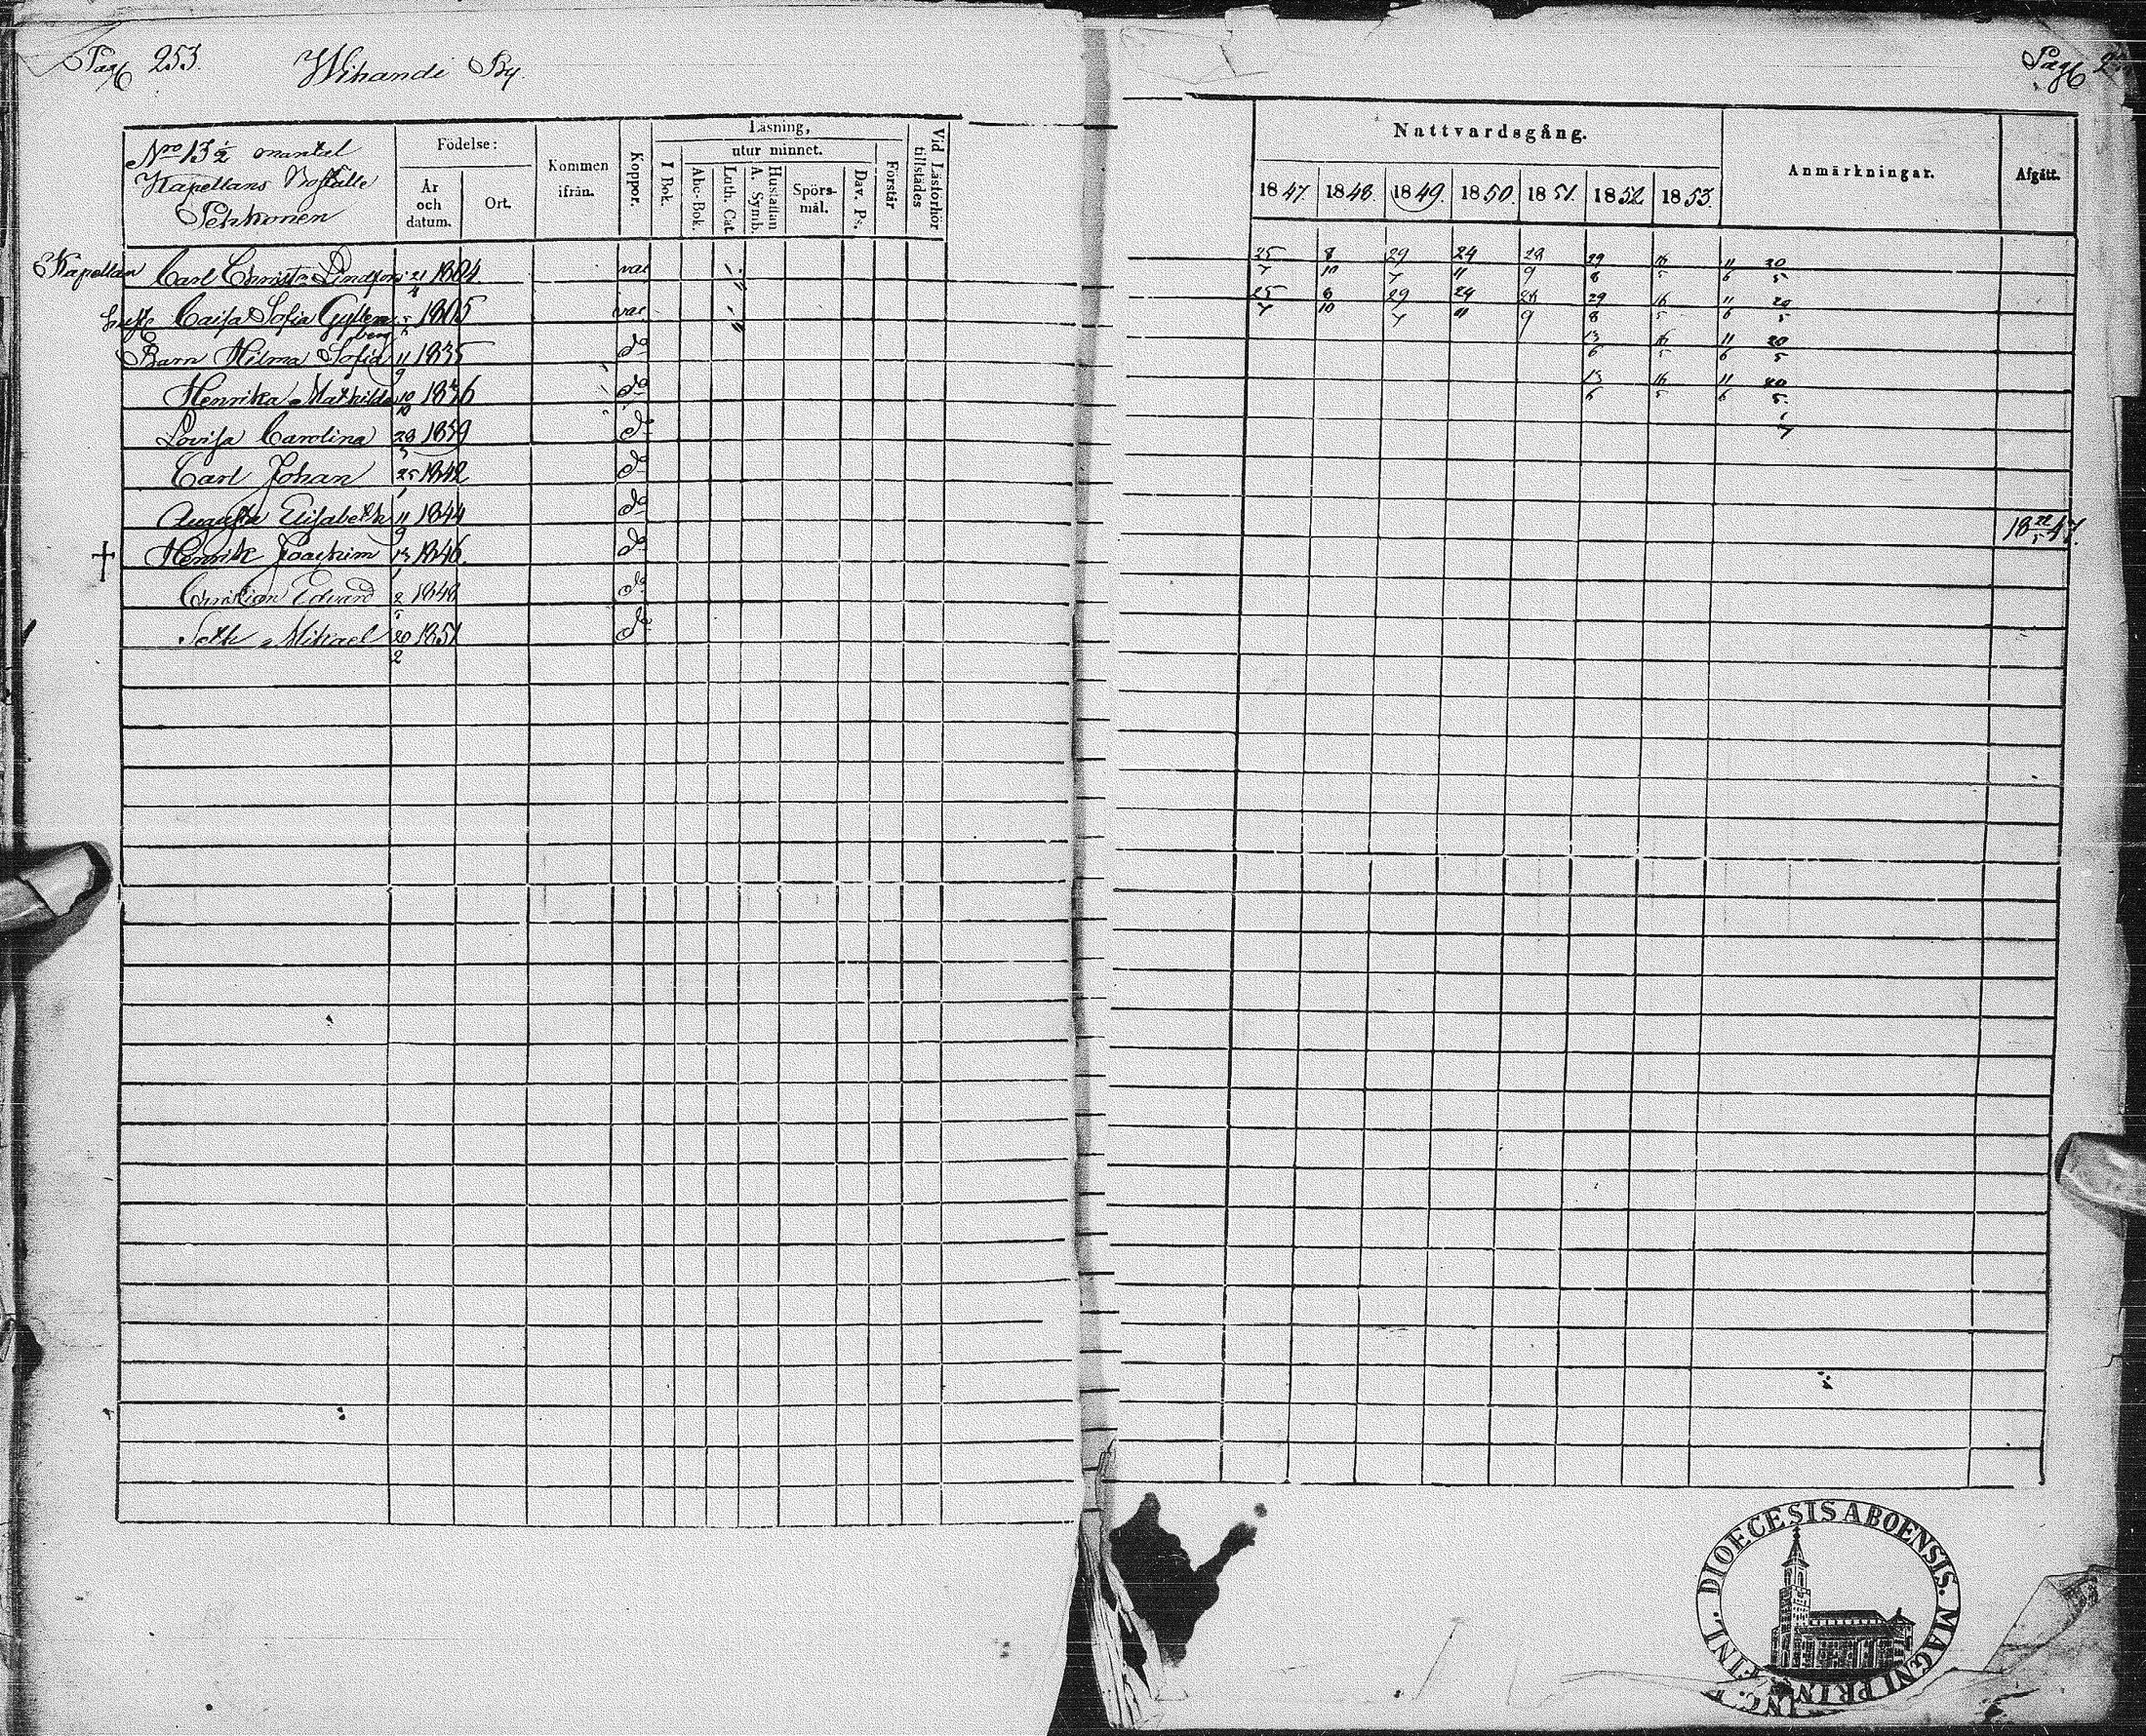 Pag 253. Wihandi By.
Pag
Nro 13 ½ mantal
Kapellans Boställe
Pehkonen
Födelse:
År och datum.
Ort.
Kommen ifrån.
Koppor.
Läsning,
I Bok.
utur minnet.
Abc-Bok.
Luth. Cat.
Hustaflan A. Symb.
Spörs-mål.
Dav. Ps.
Förstår
Vid Läsförhör tillstädes
Nattvardsgång.
1847. 1848. 1849. 1850. 1851. 1852. 1853.
Anmärkningar.
Afgått.
Kapellan Carl Christ: Lindfors 21/4 1804. vac 25/7 8/10 29/7 24/11 28/9 29/8 16/5 11/6 20/5
Caisa Sofia Gyllenberg 1805 vac 25/7 8/10 29/7 24/11 28/9 29/8 16/5 11/6 20/5
Barn Hilma Sofia 11/9 1835 do 13/6 16/5 11/6 20/5
Henrika Mathilda 10/10 1836 do 13/6 16/5 11/6 20/5
Lovisa Carolina 28/3 1839 do
Carl Johan 25/1 1842 do
Augusta Elisabeth 11/9 1844 do
† Henrik Joachim 13/1 1846. do 18 22/5 47.
Christian Edvard 2/5 1848 do
Seth Mikael 20/2 1851 do
DIOECESIS ABOENSIS. MAGNI PRINC. FINL.